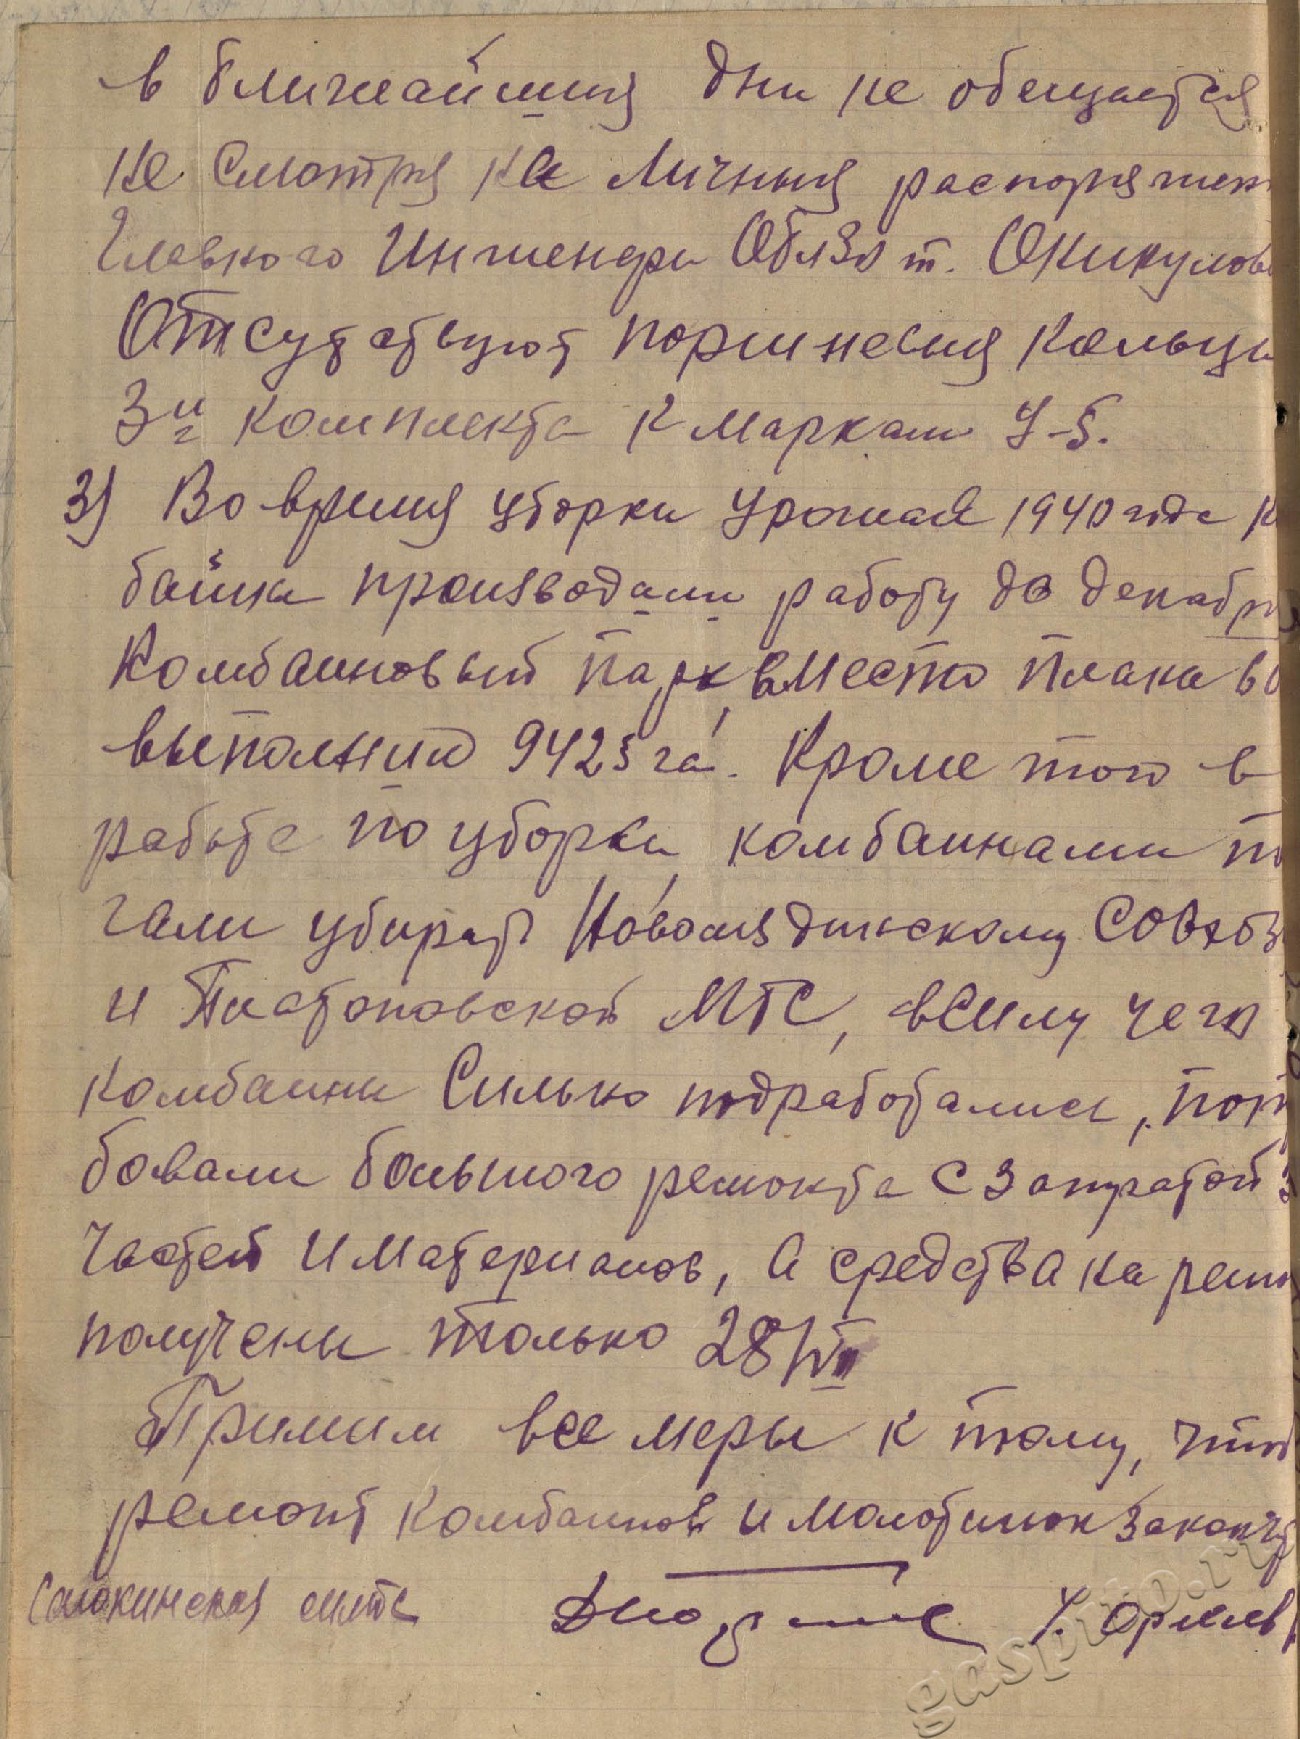 в ближайшия дни не обещается
не смотря на личныя распоряжен
Главного Инженера ОблЗо т. Окикулов
Отсутствуют поршневыя кольца
3и г комплекта к маркам У-5.
3) Во время уборки урожая 1940 года к
байны производили работу до декабр
Комбайновый парк, вместо плана в
выполнил 9425 га. Кроме того в
работе по уборки комбаинами по
гали убирать Новомалдинскому Совхоз
и Платоновской МТС, в силу чего
комбаины сильно подработались, потр
бовали большого ремонта с затратой з
частей и материалов, а средства на ремо
получены только 28/VII
Примим все меры к тому, чтоб
ремонт комбаинов и молотилок законч
Салокинская мтс У. Орлов
gaspito.ru